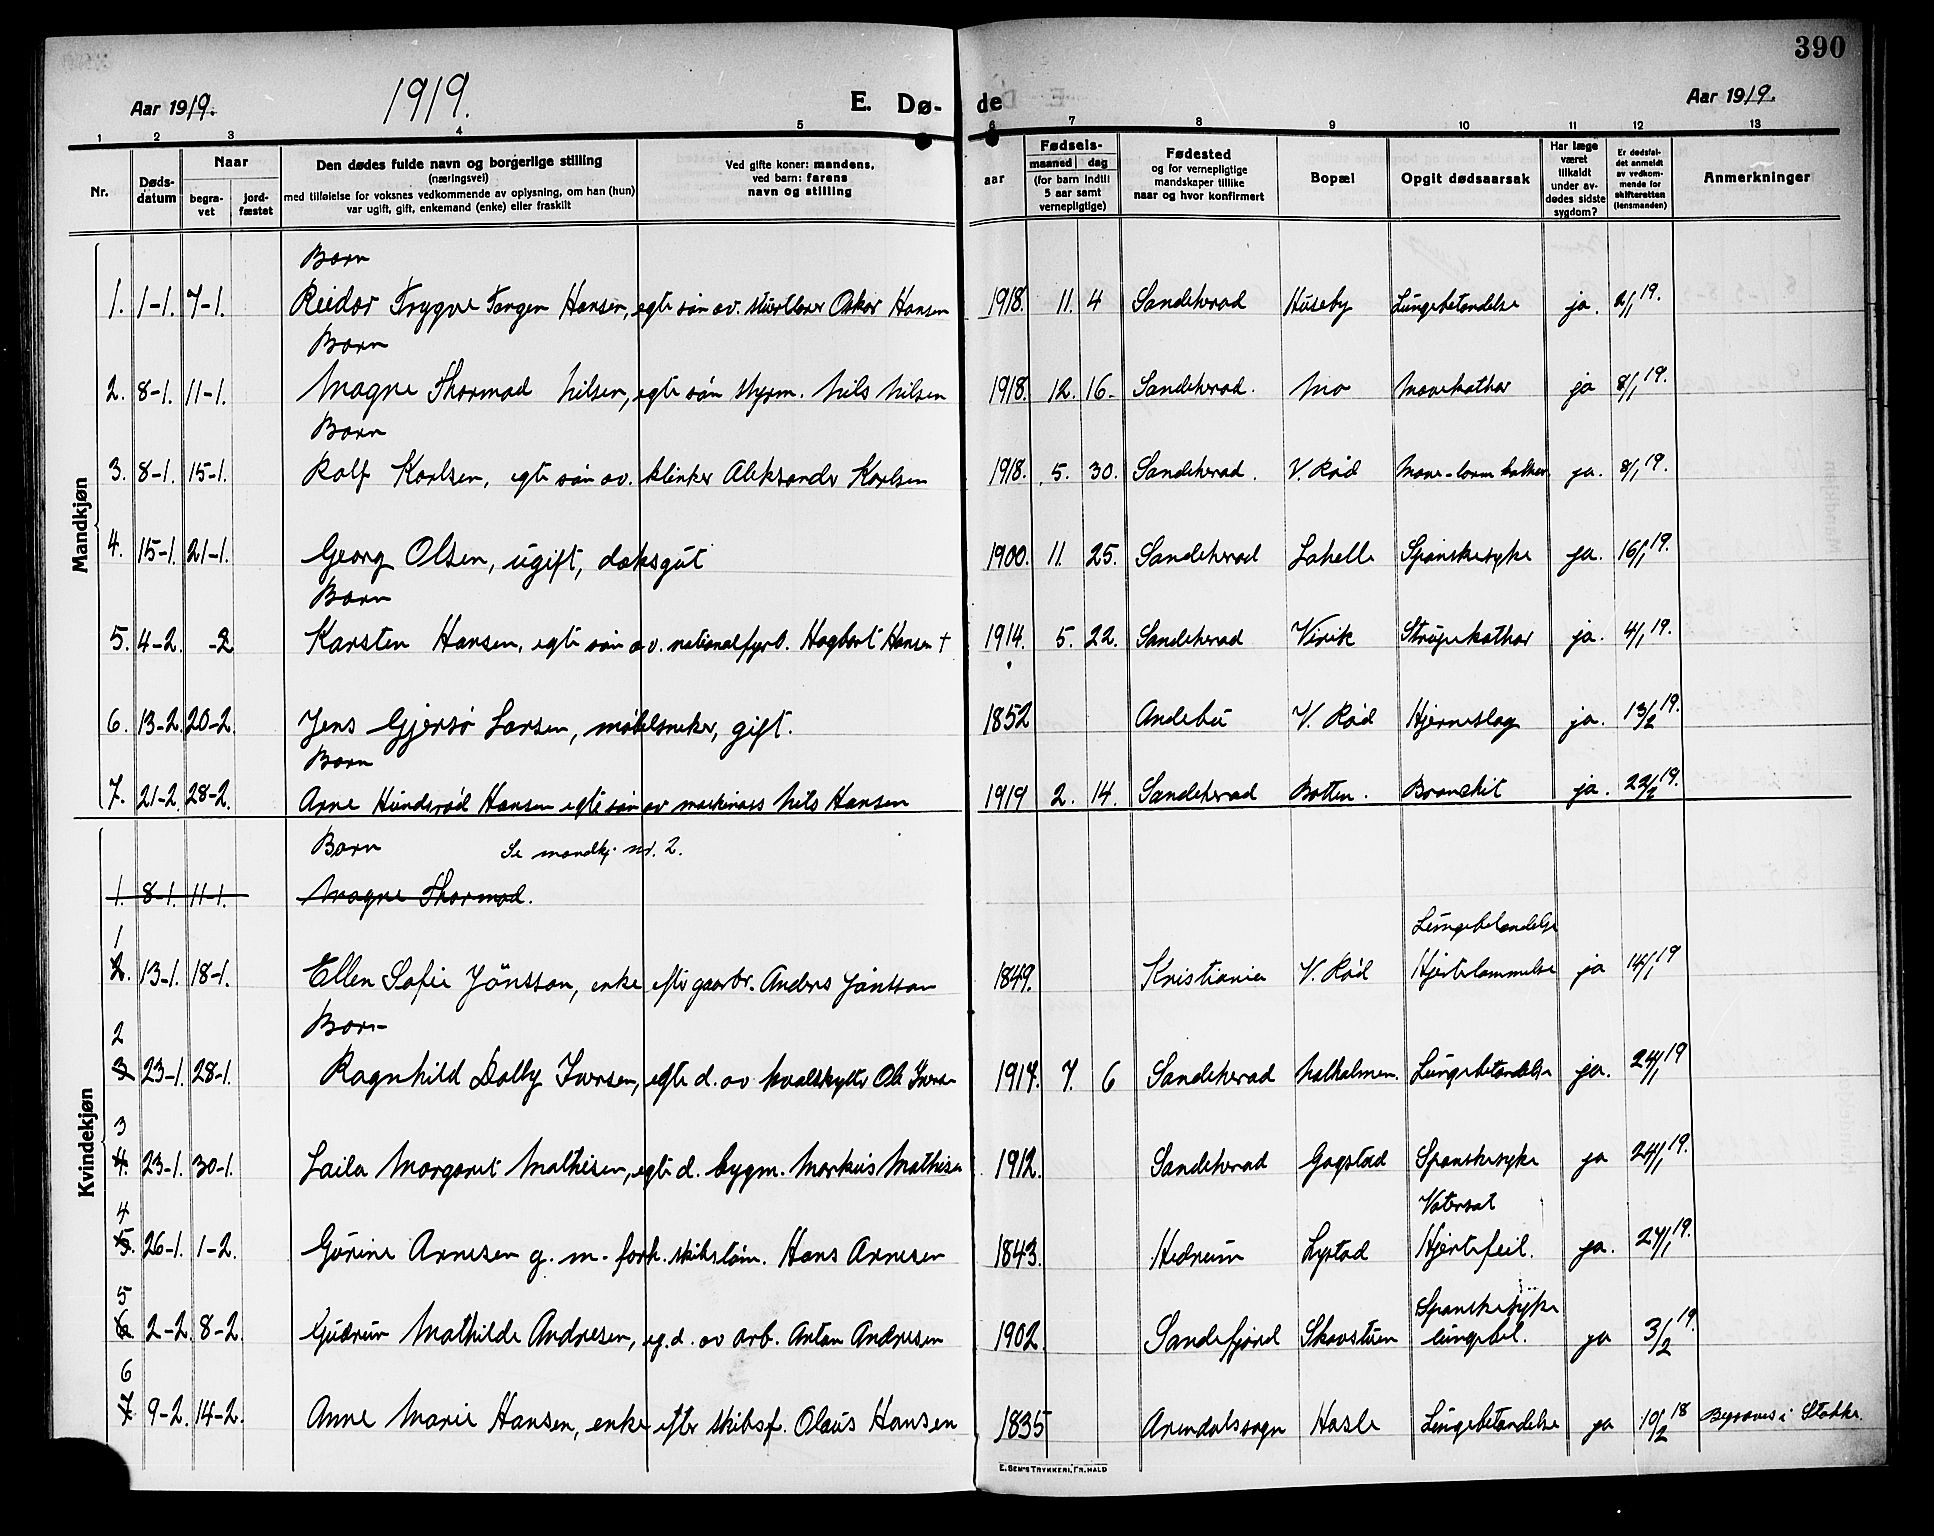 390
Aar 1919.
1919.
E. Dø-
de
Aar 1919.
1 2 3 4 5 6 7 8 9 10 11 12 13
Nr.
Døds-
datum
Naar
begra-
vet
jord-
fæstet
Den dødes fulde navn og borgerlige stilling
(næringsvei)
med tilføielse for voksnes vedkommende av oplysning, om han (hun)
var ugift, gift, enkemand (enke) eller fraskilt
Ved gifte koner: mandens,
ved barn: farens
navn og stilling
Fødsels-
aar
maaned dag
(for barn indtil
5 aar samt
vernepligtige)
Fødested
og for vernepligtige
mandskaper tillike
naar og hvor konfirmert
Bopæl
Opgit dødsaarsak
Har læge
været
tilkaldt
under av-
dødes sidste
sygdom?
Er dødsfal-
det anmeldt
av vedkom-
mende for
skifteretten
(lensmanden)
Anmerkninger
Mandkjøn
Barn
1. 1-1. 7-1. Reidar Trygve Tangen Hansen, egte søn av. Oskar Hansen 1918. 11. 4 Sandeherad Huseby Lungebetændelse ja. 2/1 19.
Barn
2. 8-1. 11-1. Magne Thormod Nilsen, egte søn styrm. Nils Nilsen 1918. 12. 16. Sandeherad. Mo Mavekathar ja 8/1 19.
Barn
3. 8-1. 15-1. Rolf Karlsen, egte søn av. klinker Aleksander Karlsen 1918. 5. 30. Sandeherad. V. Rød ja. 8/1 19.
4. 15-1. 21-1. Georg Olsen, ugift, dæksgut 1900. 11. 25. Sandeherad Lahelle Spanskesyke ja. 16/1 19.
Barn
5. 4-2. -2 Karsten Hansen, egte søn av. Hagbart Hansen + 1914. 5. 22. Sandeherad Virik Strupekathar ja. 4/1 19.
6. 13-2. 20-2. Jens Gjersø Larsen, møbelsneker, gift. 1852 Andebu V. Rød Hjerneslag ja. 13/2 19.
Barn
7. 21-2. 28-2. Arne Hundsrød Hansen egte søn av maskinass Nils Hansen 1919 2. 14. Sandeherad Botten. Bronchit ja. 22/2 19.
Kvindekjøn
Barn Se mandkj. nr. 2.
1. 8-1. 11-1. Magne Thormod.
1 Lungebetændelse
2. 13-1. 18-1. Ellen Sofie Jönsson, enke efter gaarbr. Anders Jönsson 1849. Kristiania V. Rød Hjertelammelse ja 14/1 19
Barn
2
3 23-1. 28-1. Ragnhild Dolly Iversen, egte d. av hvalskytter Ole Iversen 1917. 7. 6 Sandeherad Natholmen. Lungebetændelse ja. 24/1 19
3
4. 23-1. 30-1. Laila Margaret Mathisen, egte d. bygm. Markus Mathisen 1912. Sandeherad Gogstad Spanskesyke ja 24/1 19.
4 Vatersot
5. 26-1. 1-2. Gurine Arnesen g. m. forh. skibstøm. Hans Arnesen 1843. Hedrum Lystad Hjertefeil. ja. 27/1 19.
5 Spanskesyke
6 2-2. 8-2. Gudrun Mathilde Andresen, eg. d. av arb. Anton Andresen 1902. Sandefjord Skaustuen lungebet. ja 3/2 19.
6
7 9-2. 14-2. Anne Marie Hansen, enke efter skibsf. Olaus Hansen 1835 Arendalssogn Hasle Lungebetændelse ja 10/2 18 Begraves i Stokke.
E. SEM'S TRYKKERI, FR.HALD